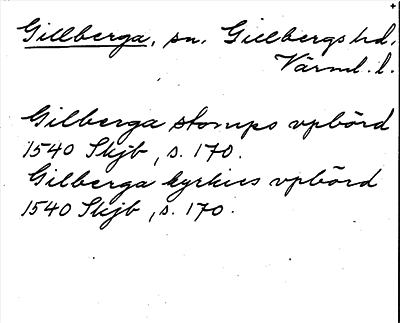 Gillberga, sn, Gillbergs hd,
Värml. l.
Gilberga stomps vpbörd
1540 Skjb, s. 170.
Gilberga kyrkies vpbörd
1540 Skjb, s. 170.